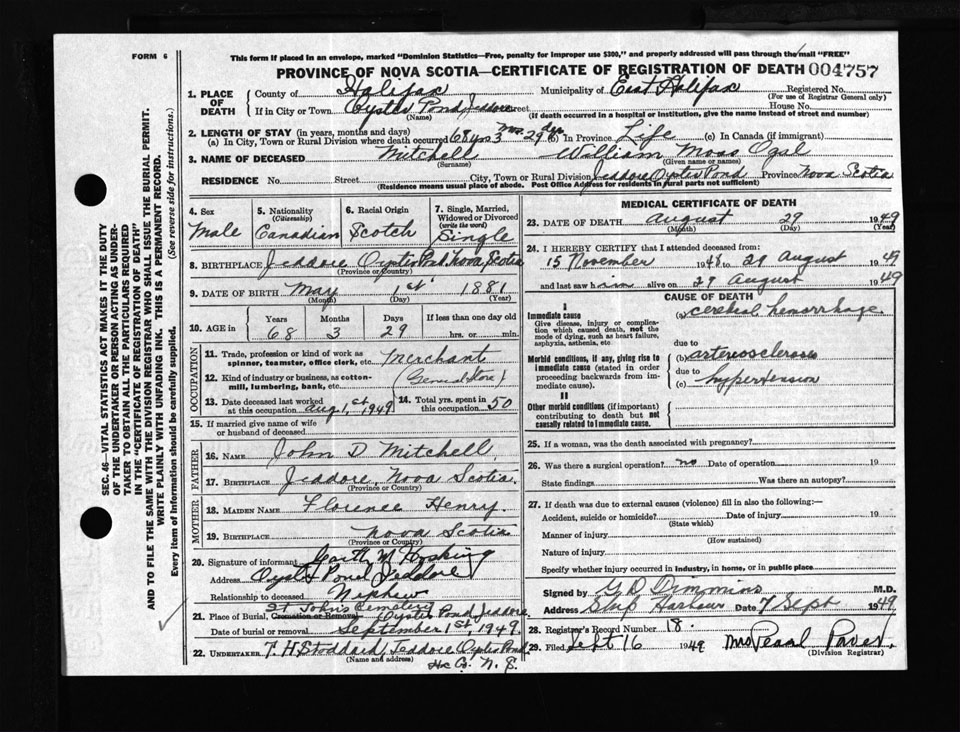 FORM 6
This form if placed in an envelope, marked "Dominion Statistics—Free, penalty for improper use $300," and properly addressed will pass through the mail "FREE"
PROVINCE OF NOVA SCOTIA—CERTIFICATE OF REGISTRATION OF DEATH 004757
1. PLACE OF DEATH
County of Halifax Municipality of East Halifax Registered No.
(For use of Registrar General only)
If in City or Town Oyster Pond, Jeddore Street House No.
(Name) (If death occurred in a hospital or institution, give the name instead of street and number)
2. LENGTH OF STAY (in years, months and days)
(a) In City, Town or Rural Division where death occurred 68 yrs 3 Mos. 29 (b) In Province Life (c) In Canada (if immigrant)
3. NAME OF DECEASED Mitchell William Moas
(Surname) (Given name or names)
RESIDENCE No. Street City, Town or Rural Division Jeddore Oyster Pond Province Nova Scotia
(Residence means usual place of abode. Post Office Address for residents in rural parts not sufficient)
4. Sex Male
5. Nationality (Citizenship) Canadian
6. Racial Origin Scotch
7. Single, Married, Widowed or Divorced (write the word) Single
8. BIRTHPLACE Jeddore Oyster Pond, Nova Scotia
(Province or Country)
9. DATE OF BIRTH May 1st 1881
(Month) (Day) (Year)
10. AGE in Years Months Days If less than one day old
68 3 29 hrs. or min.
OCCUPATION
11. Trade, profession or kind of work as spinner, teamster, office clerk, etc. Merchant
12. Kind of industry or business, as cotton-mill, lumbering, bank, etc. (General Store)
13. Date deceased last worked at this occupation Aug 1st 1949
14. Total yrs. spent in this occupation 50
15. If married give name of wife or husband of deceased
FATHER
16. NAME John D Mitchell
17. BIRTHPLACE Jeddore, Nova Scotia
(Province or Country)
MOTHER
18. MAIDEN NAME Florence Henry.
19. BIRTHPLACE Nova Scotia
(Province or Country)
20. Signature of informant Garth M Hosking
Address Oyster Pond Jeddore
Relationship to deceased Nephew
St John's Cemetery
21. Place of Burial, Cremation or Removal Oyster Pond Jeddore
Date of burial or removal September 1st 1949.
22. UNDERTAKER T. H. Stoddard, Jeddore Oyster Pond
(Name and address)
Hx Co. N. S.
MEDICAL CERTIFICATE OF DEATH
23. DATE OF DEATH August 29 1949
(Month) (Day) (Year)
24. I HEREBY CERTIFY that I attended deceased from:
15 November 1948 to 29 August 1949
and last saw him alive on 29 August 1949
CAUSE OF DEATH
I
Immediate cause (a) cerebral hemorrhage
Give disease, injury or complication which caused death, not the mode of dying, such as heart failure, asphyxia, asthenia, etc.
due to
Morbid conditions, if any, giving rise to immediate cause (stated in order proceeding backwards from immediate cause).
(b) arteriosclerosis
due to
(c) hypertension
II
Other morbid conditions (if important) contributing to death but not causally related to immediate cause.
25. If a woman, was the death associated with pregnancy?
26. Was there a surgical operation? no Date of operation 19
State findings Was there an autopsy?
27. If death was due to external causes (violence) fill in also the following:—
Accident, suicide or homicide? Date of injury 19
(State which)
Manner of injury
(How sustained)
Nature of injury
Specify whether injury occurred in industry, in home, or in public place
Signed by G D Dimmins M.D.
Address Ship Harbour Date 7 Sept 1949
28. Registrar's Record Number 18.
29. Filed Sept 16 1949 Mrs Pearl
(Division Registrar)
SEC. 46—VITAL STATISTICS ACT MAKES IT THE DUTY
OF THE UNDERTAKER OR PERSON ACTING AS UNDER-
TAKER TO OBTAIN ALL THE PARTICULARS REQUIRED
IN THE "CERTIFICATE OF REGISTRATION OF DEATH"
AND TO FILE THE SAME WITH THE DIVISION REGISTRAR WHO SHALL ISSUE THE BURIAL PERMIT.
WRITE PLAINLY WITH UNFADING INK. THIS IS A PERMANENT RECORD.
Every item of Information should be carefully supplied. (See reverse side for instructions.)